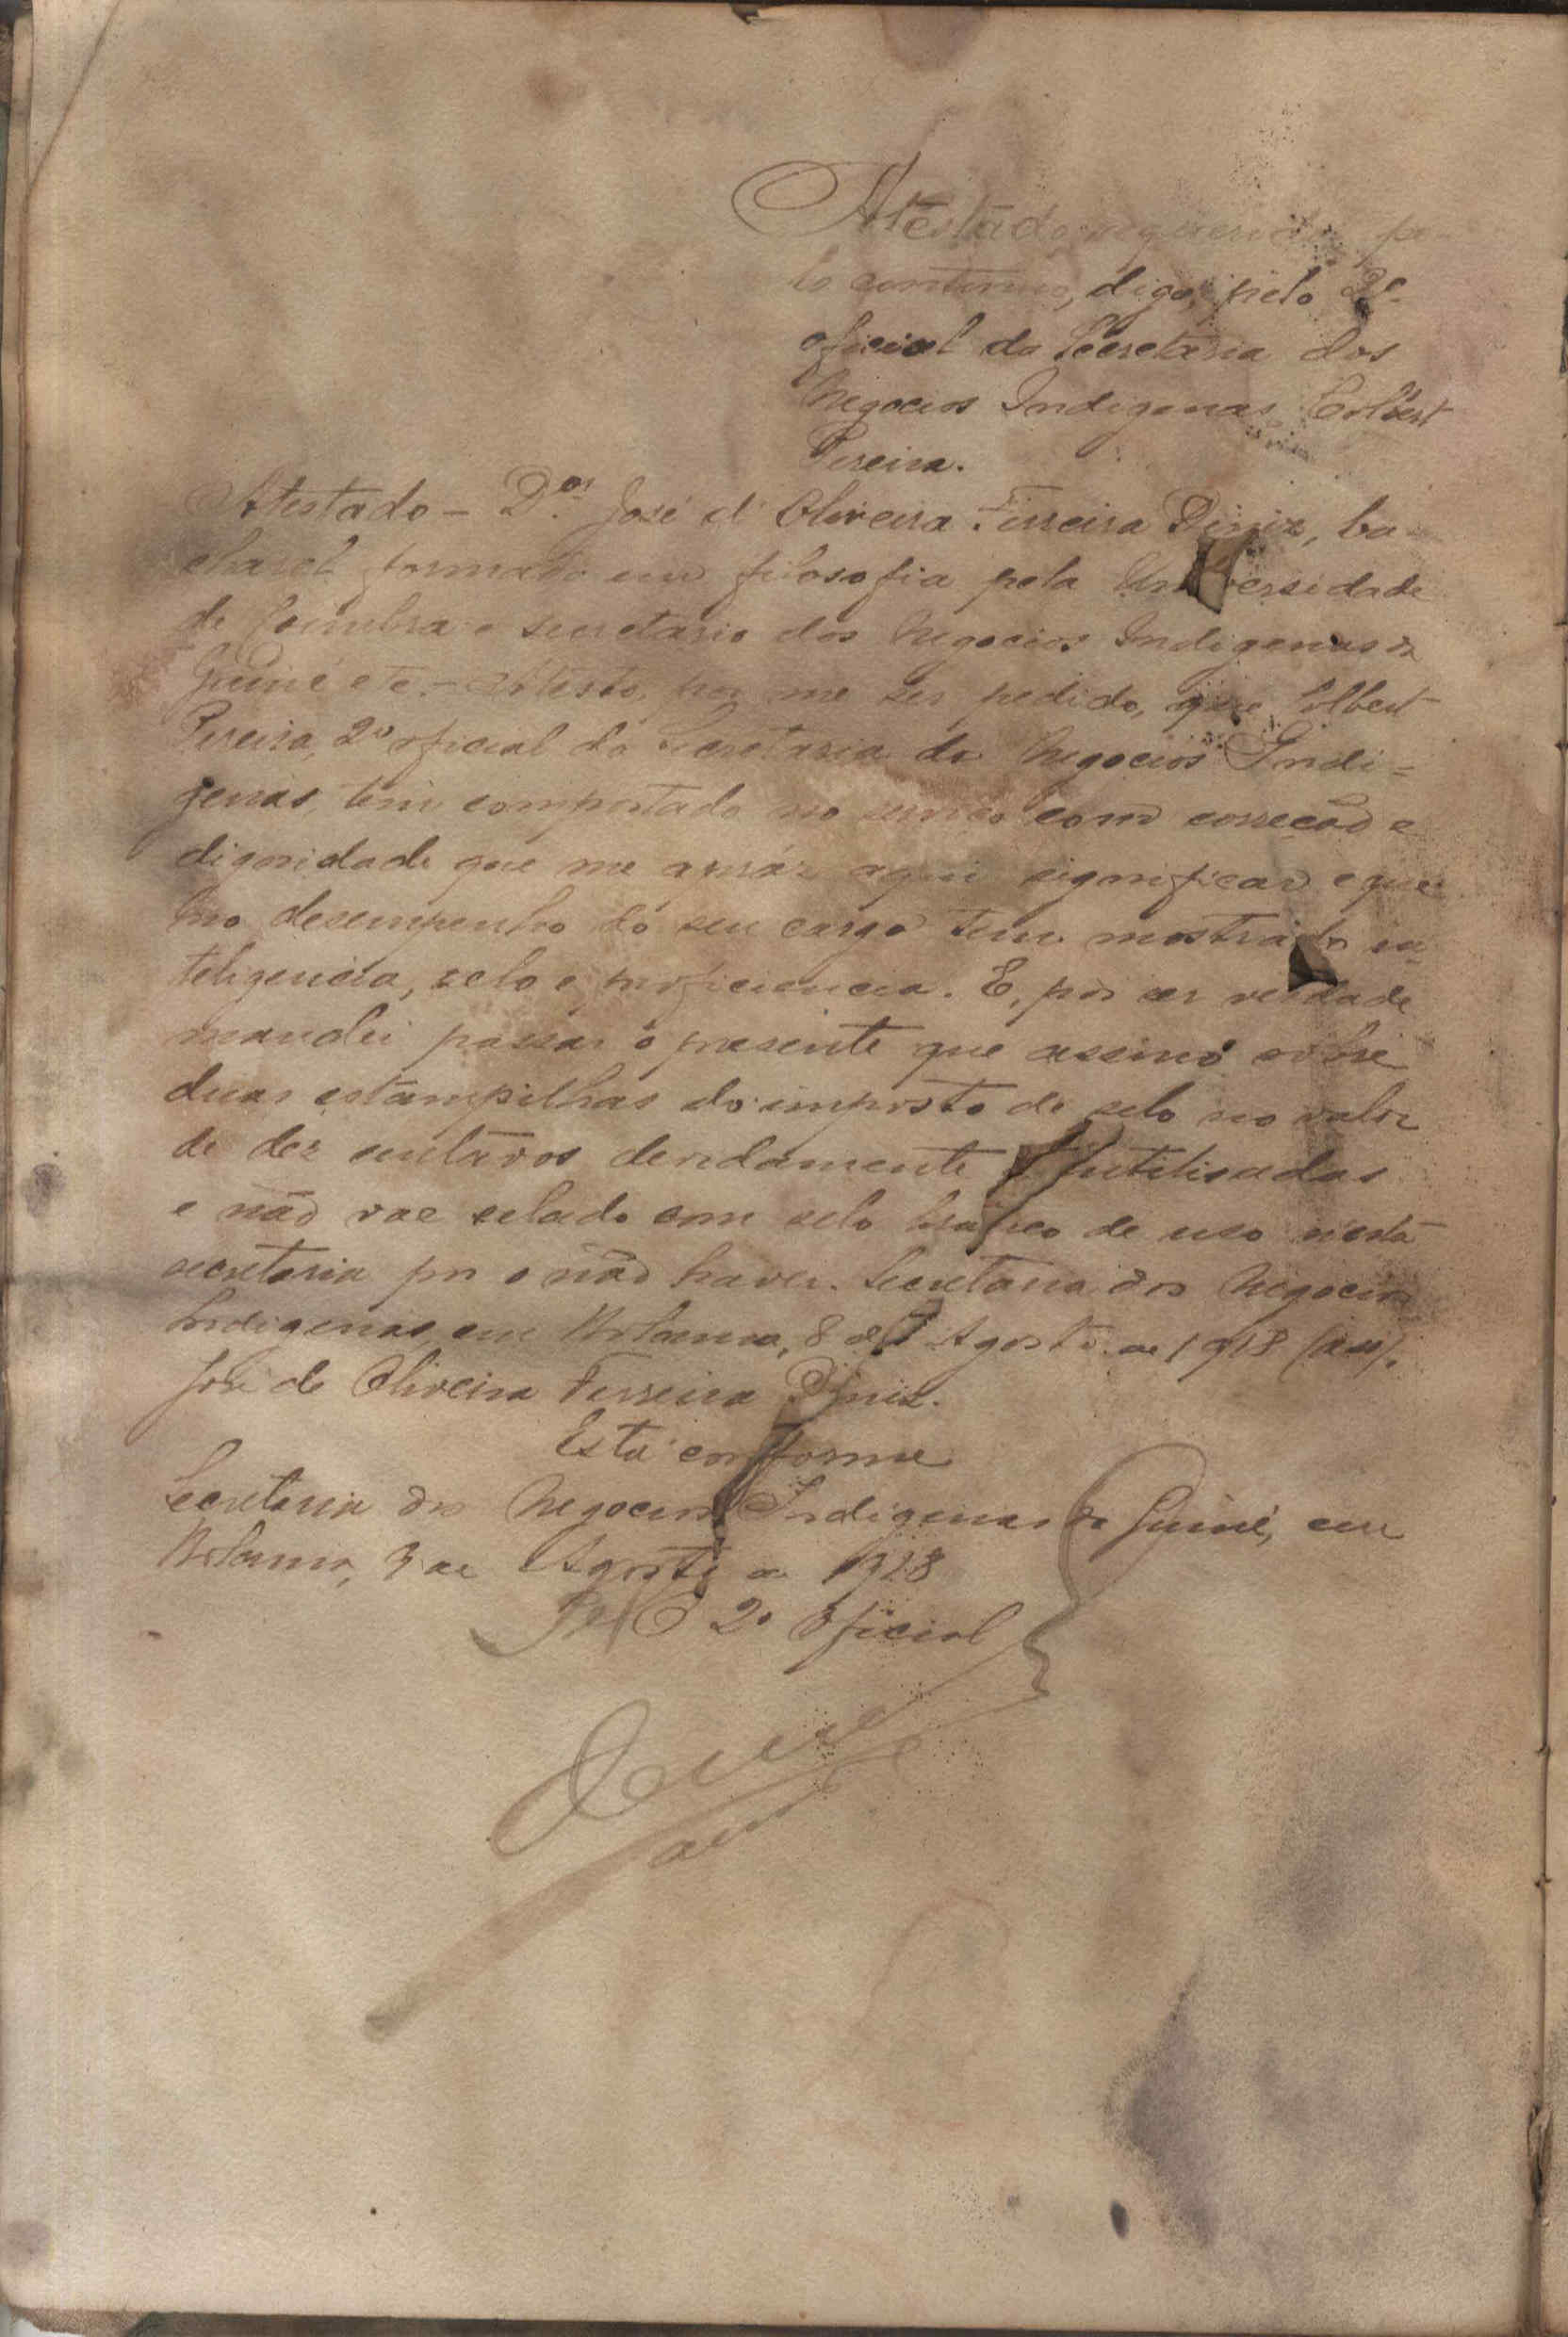 Atestado requerido pe-
lo continuo, digo, pelo 2º
oficial da Secretaria dos
Negocios Indigenas Colbert
Pereira.
Atestado - José d'Oliveira Ferreira Diniz, ba-
charel formado em filosofia pela Universidade
de Coimbra e secretario dos Negocios Indigenas da
Guiné etc. - Atesto, por me ser pedido, que Colbert
Pereira, 2º oficial da Secretaria de Negocios Indi-
genas, tem comportado no serviço com correcão e
dignidade que me apráz aqui significar e que
no desempenho do seu cargo tem mostrado in-
teligencia, zelo e proficiencia. E, por ser verdade
mandei passar o presente que assino sobre
duas estampilhas do imposto do selo no valor
de dez centavos devidamente inutilisadas
e não vae selado com selo branco de uso nesta
secretaria por o não haver. Secretaria dos Negocios
Indigenas em Bolama, 8 de Agosto de 1918 (aa).
José de Oliveira Ferreira Diniz.
Está conforme
Secretaria dos Negocios Indigenas da Guiné, em
Bolama, de Agosto de 1918
O 2º Oficial